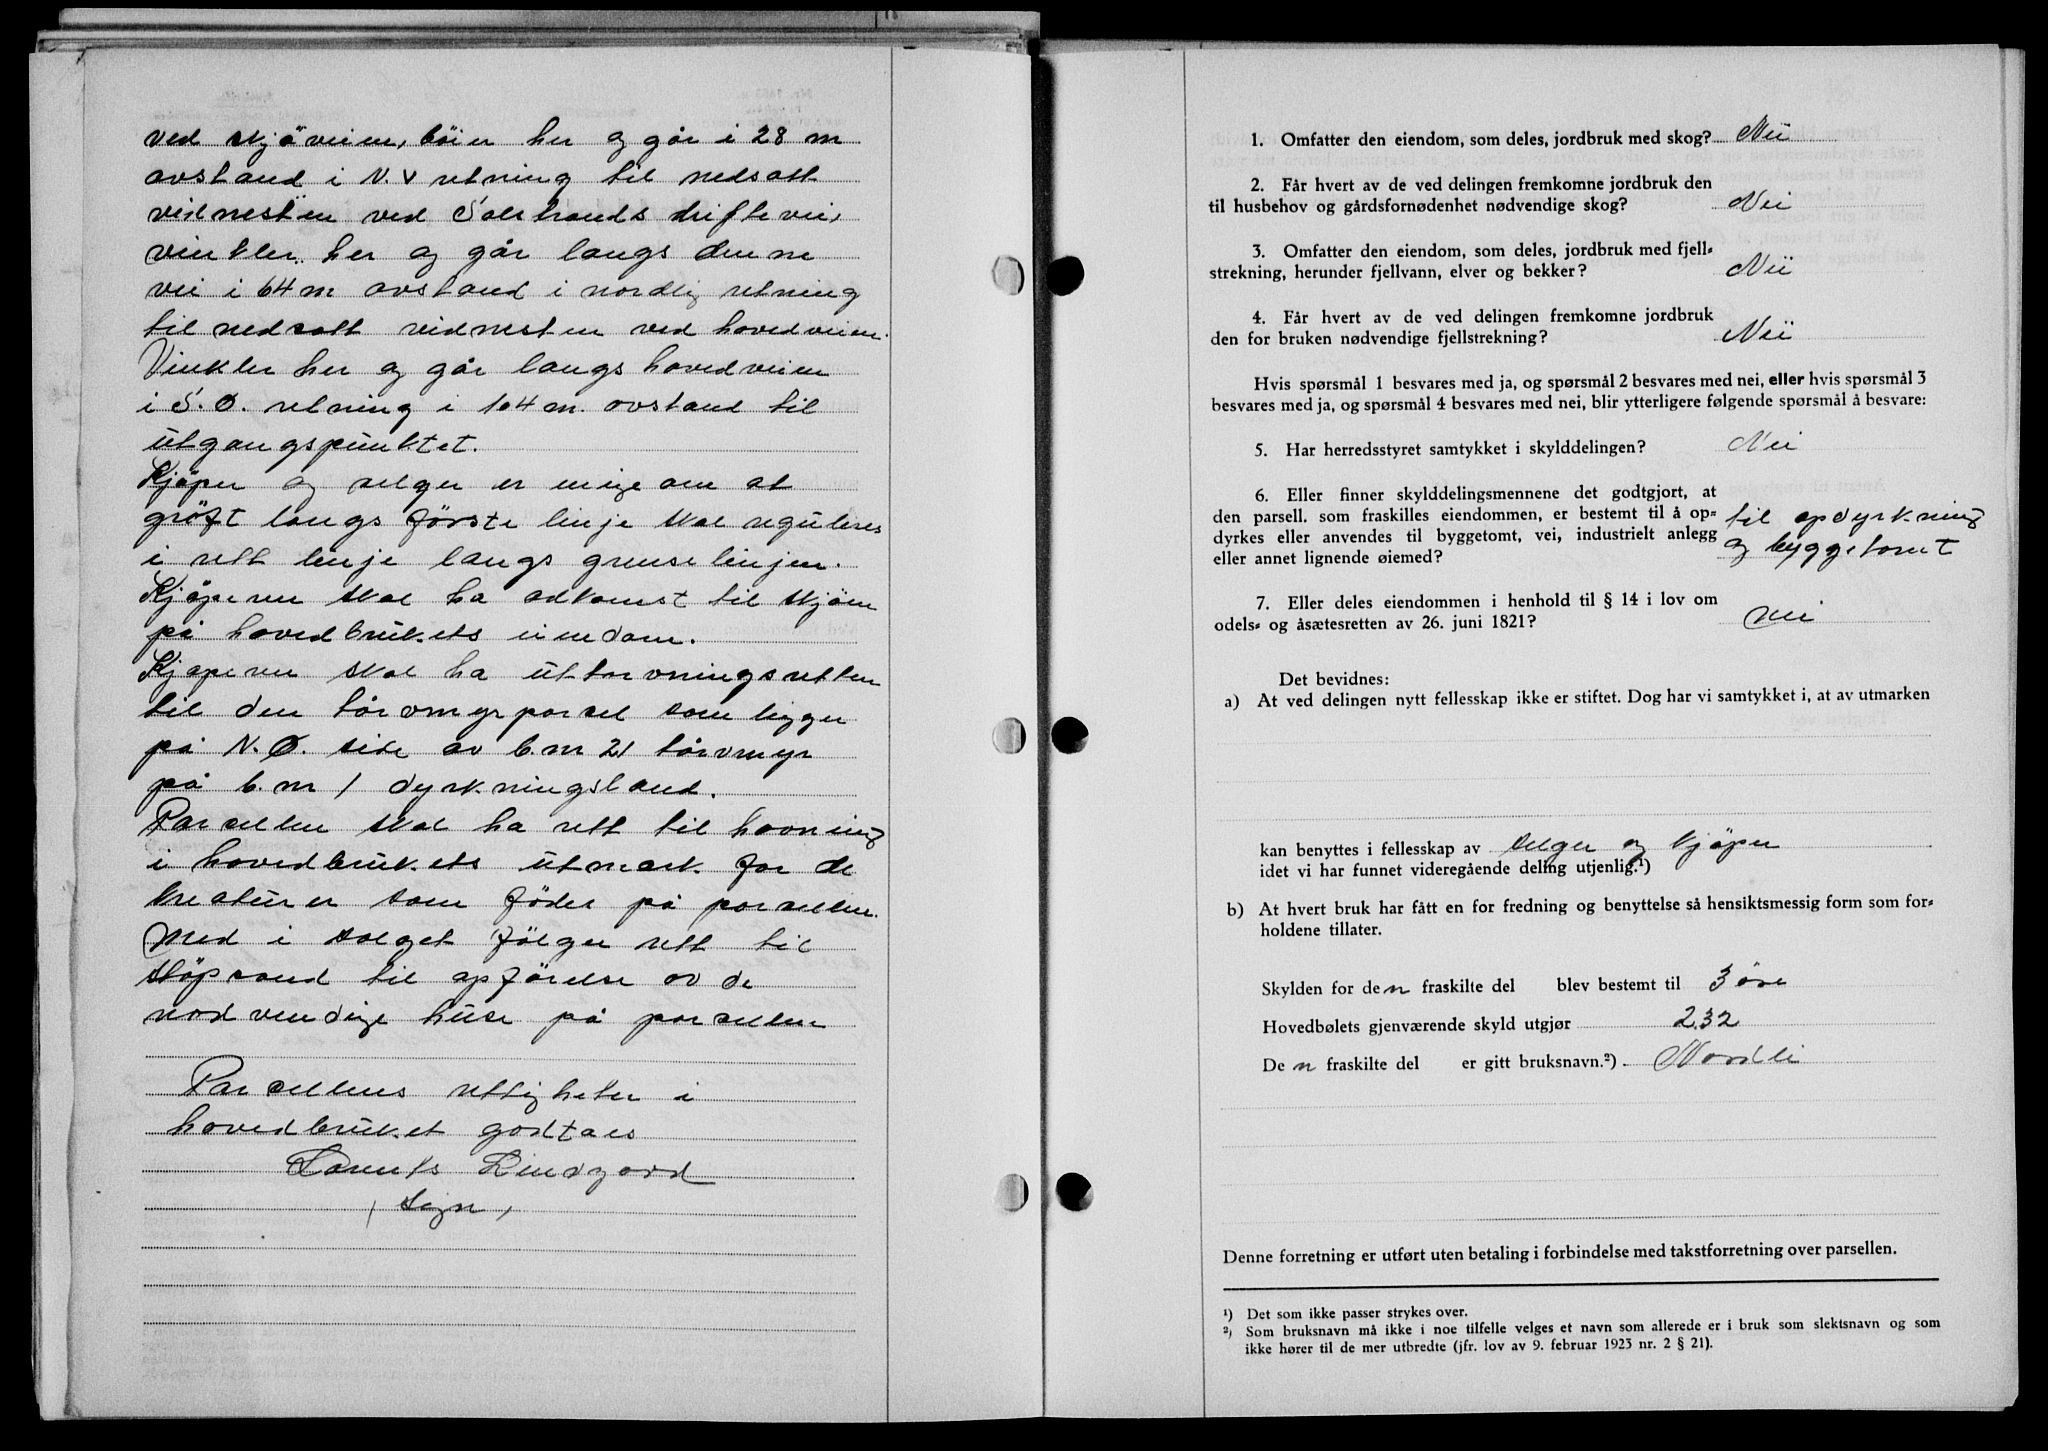 ved skjöveien, böier her og går i 28 m
avstand i N.V retning til nedsatt
vidnesten ved Solstrands driftevei,
vinkler her og går langs denne
vei i 64 m avstand i nordlig retning
til nedsatt vidnesten ved hovedveien.
Vinkler her og går langs hovedveien
i S.Ø. retning i 104 m. avstand til
utgangspunktet.
Kjöper og selger er enige om at
gröft langs förste linje skal reguleres
i rett linje langs grenselinjen.
Kjöperen skal ha adkomst til skjöen
på hovedbrukets eiendom.
Kjøperen skal ha uttorvningsretten
til den torvmyrparsel som ligger
på N.Ø. side av b.nr 21 torvmyr
på b.nr 1 dyrkningsland.
Parcellen skal ha rett til havning
i hovedbrukets utmark for de
kreaturer som födes på parcellen.
Med i salget fölger rett til
stöpsand til opförelse av de
nødvendige huse på parcellen
Parcellens rettigheter i
hovedbruket godtaes
Lindgård
/ sign /
1. Omfatter den eiendom, som deles, jordbruk med skog? Nei
2. Får hvert av de ved delingen fremkomne jordbruk den
til husbehov og gårdsfornødenhet nødvendige skog? Nei
3. Omfatter den eiendom, som deles, jordbruk med fjell-
strekning, herunder fjellvann, elver og bekker? Nei
4. Får hvert av de ved delingen fremkomne jordbruk
den for bruken nødvendige fjellstrekning? Nei
Hvis spørsmål 1 besvares med ja, og spørsmål 2 besvares med nei, eller hvis spørsmål 3
besvares med ja, og spørsmål 4 besvares med nei, blir ytterligere følgende spørsmål å besvare:
5. Har herredsstyret samtykket i skylddelingen? Nei
6. Eller finner skylddelingsmennene det godtgjort, at
den parsell. som fraskilles eiendommen, er bestemt til å op- til opdyrkning
dyrkes eller anvendes til byggetomt, vei, industrielt anlegg og byggetomt
eller annet lignende øiemed?
7. Eller deles eiendommen i henhold til § 14 i lov om
odels- og åsætesretten av 26. juni 1821? nei
Det bevidnes:
a) At ved delingen nytt fellesskap ikke er stiftet. Dog har vi samtykket i, at av utmarken
kan benyttes i fellesskap av selger og kjöper
idet vi har funnet videregående deling utjenlig.¹)
b) At hvert bruk har fått en for fredning og benyttelse så hensiktsmessig form som for-
holdene tillater.
Skylden for den fraskilte del blev bestemt til 3 øre
Hovedbølets gjenværende skyld utgjør 2.32
Den fraskilte del er gitt bruksnavn.²) Nordli
Denne forretning er utført uten betaling i forbindelse med takstforretning over parsellen.
¹) Det som ikke passer strykes over.
²) Som bruksnavn må ikke i noe tilfelle velges et navn som allerede er i bruk som slektsnavn og som
ikke hører til de mer utbredte (jfr. lov av 9. februar 1923 nr. 2 § 21).